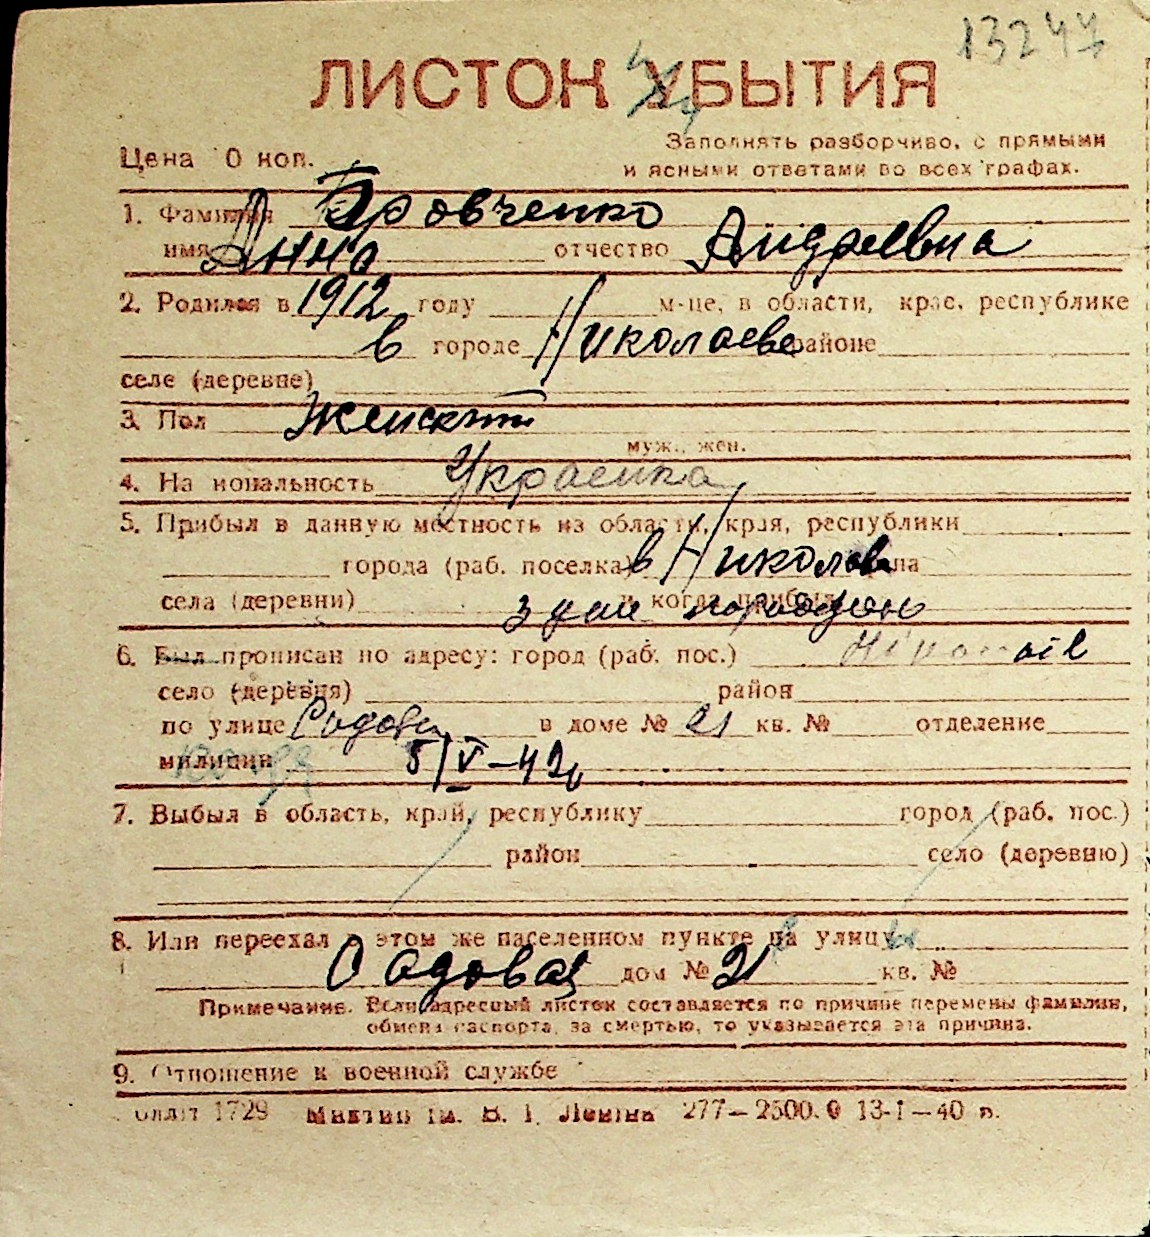 13247
ЛИСТОК УБЫТИЯ
Цена 0 коп.
Заполнять разборчиво, с прямыми
и ясными ответами во всех графах.
1. Фамилия Бровченко
имя Анна отчество Андреевна
2. Родился в 1912 году м-це, в области, крае, республике
в городе Николаеве районе
селе (деревне)
3. Пол Женский
муж., жен.
4. Национальность Украенка
5. Прибыл в данную местность из области, края, республики
города (раб. поселка) в Николаев
села (деревни) и когда прибыл
6. Был прописан по адресу: город (раб. пос.)
село (деревня) район
по улице Садовая в доме № 21 кв. № отделение
милиции 5/V-42
7. Выбыл в область, край, республику город (раб. пос.)
район село (деревню)
8. Или переехал в этом же населенном пункте на улицу
Садовая дом № 21 кв. №
Примечание. Если адресный листок составляется по причине перемены фамилии,
обмена паспорта, за смертью, то указывается эта причина.
9. Отношение к военной службе
1729 277—2500.0 13-I—40 р.